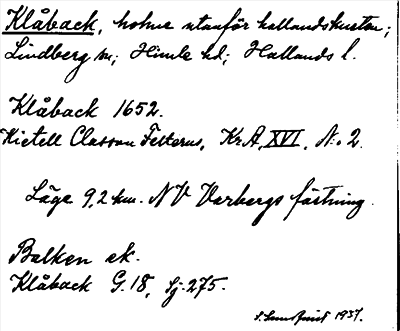 Klåback, holme utanför hallandskusten;
Lindberg sn; Himle hd; Hallands l.
Klåback 1652.
Kietell Classon Felterus, Kr.A, XVI, N:o 2.
Läge 9,2 km. NV Varbergs fästning.
Balken ek.
Klåback G.18, Sj. 275.
1937.